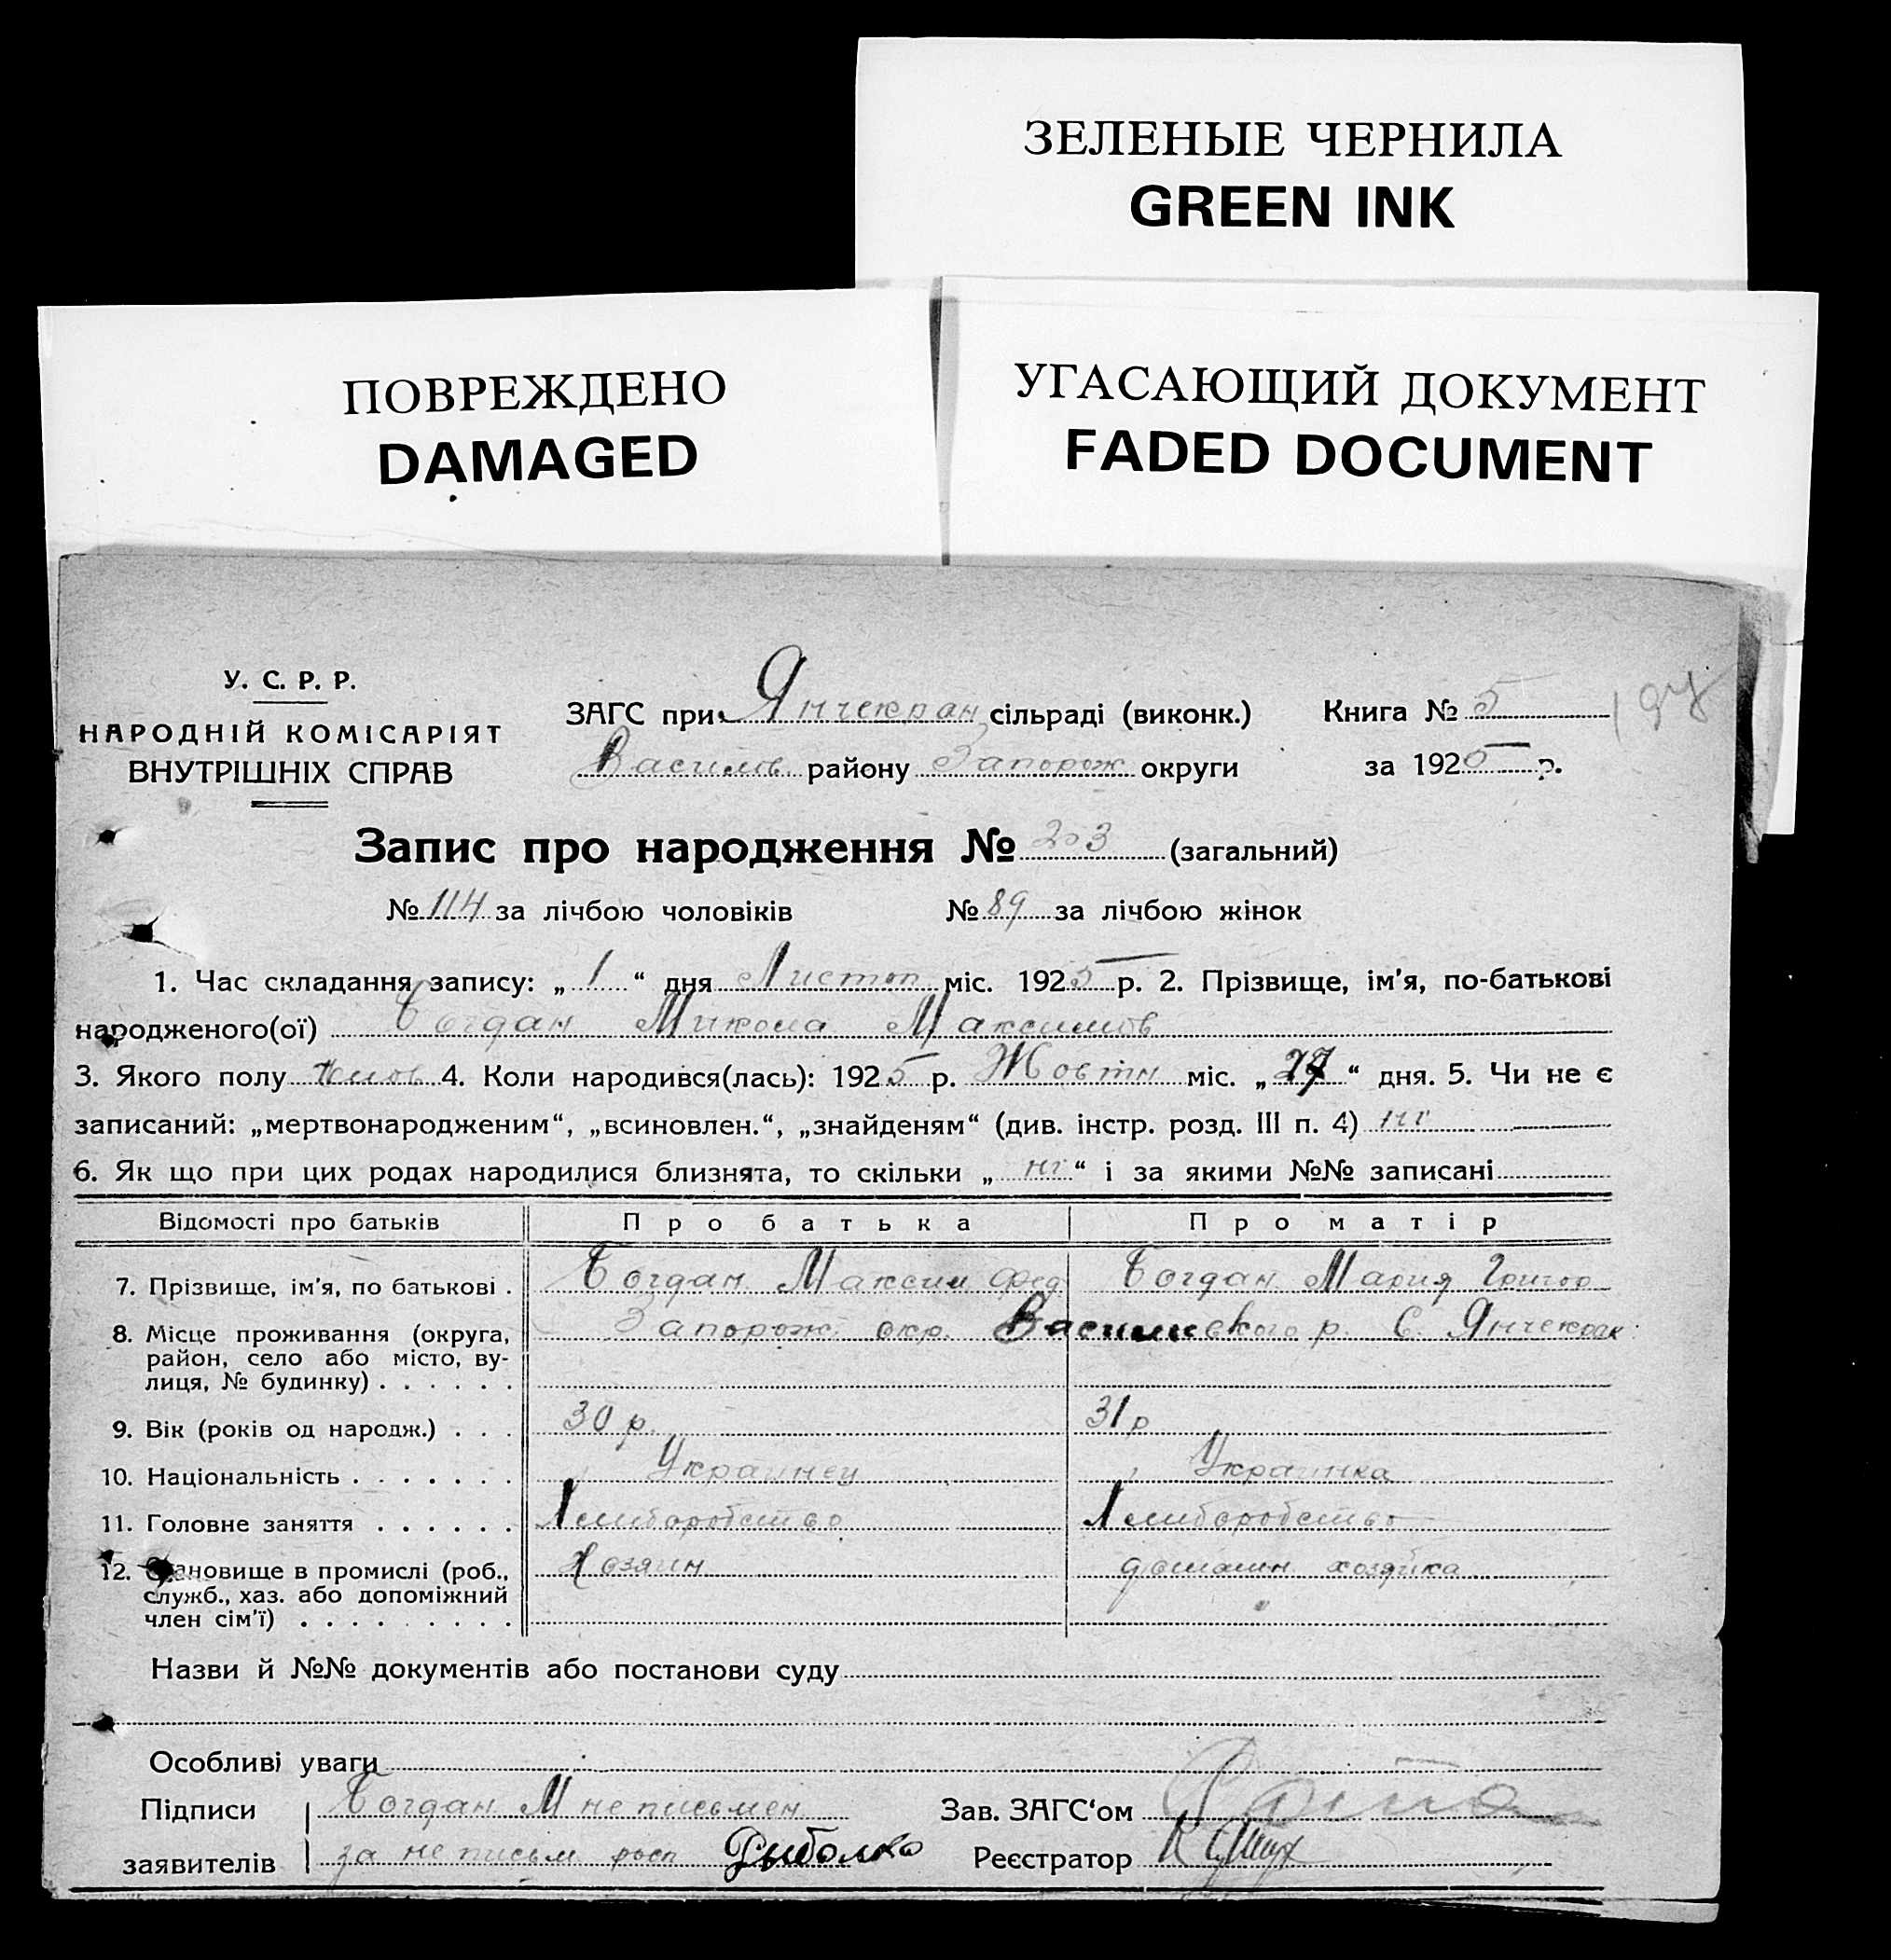 ЗЕЛЕНЫЕ ЧЕРНИЛА
GREEN INK
ПОВРЕЖДЕНО
DAMAGED
УГАСАЮЩИЙ ДОКУМЕНТ
FADED DOCUMENT
У. С. Р. Р.
НАРОДНІЙ КОМІСАРІЯТ
ВНУТРІШНІХ СПРАВ
ЗАГС при Янчекран сільраді (виконк.)
Василів району Запорож округи
Книга № 5
за 1925 р.
Запис про народження № 203 (загальний)
№ 114 за лічбою чоловіків № 89 за лічбою жінок
1. Час складання запису: „ 1 “ дня Листоп міс. 1925 р. 2. Прізвище, ім'я, по-батькові
народженого(ої) Богдан Микола Максимов
3. Якого полу 4. Коли народився(лась): 1925 р. Жовтн міс. „ 27 “ дня. 5. Чи не є
записаний: „мертвонародженим“, „всиновлен.“, „знайденям“ (див. інстр. розд. III п. 4) ні
6. Як що при цих родах народилися близнята, то скільки „ ні “ і за якими №№ записані
Відомості про батьків Про батька Про матір
7. Прізвище, ім'я, по батькові . Богдан Максим Фед Богдан Мария Григор
8. Місце проживання (округа, район, село або місто, вулиця, № будинку) . . . . . . Запорож. окр. Василівского р. С. Янчекрак
9. Вік (років од народж.) . . . 30 р. 31 р
10. Національність . . . . . . . Украинец Украинка
11. Головне заняття . . . . . . Хлиборобство Хлиборобство
12. Становище в промислі (роб., служб., хаз. або допоміжний член сім'ї) . . . . . . . . . Хозяин домашн хозяйка
Назви й №№ документів або постанови суду
Особливі уваги
Підписи Богдан М неписьмен Зав. ЗАГС'ом
заявителів за неписьм росп Рыбалко Реєстратор